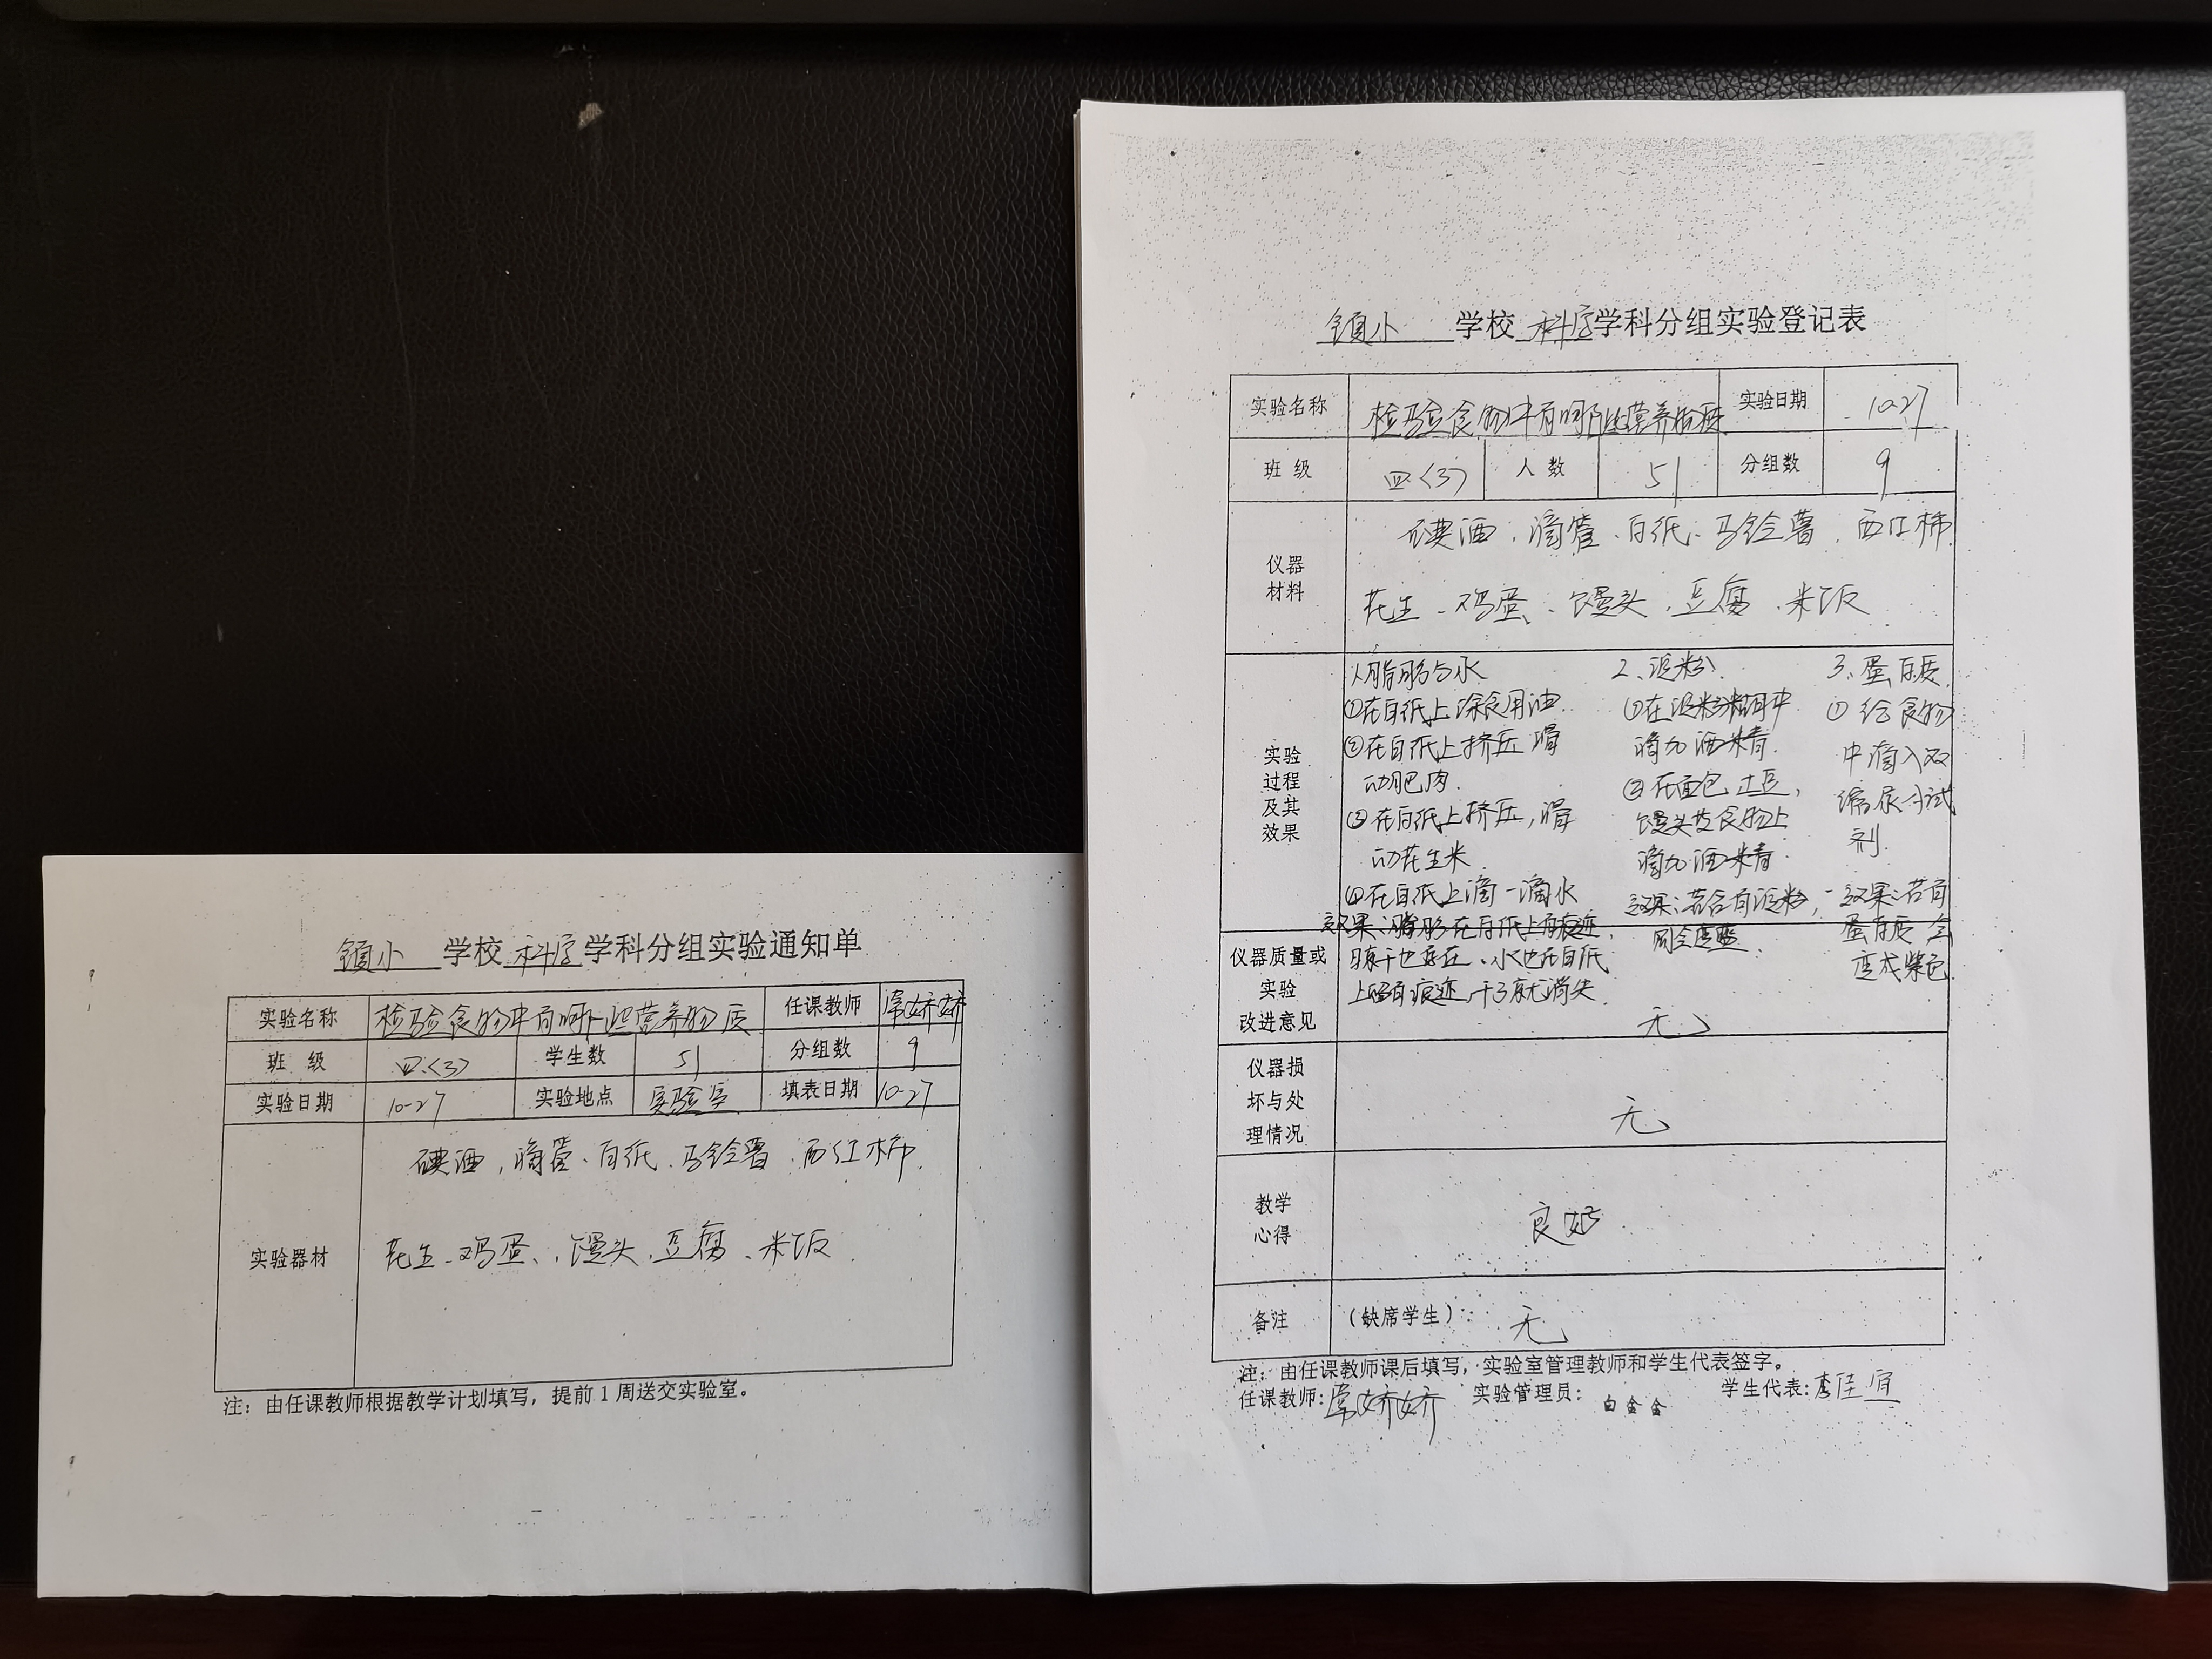 镇小 学校 科学 学科分组实验通知单
实验名称 检验食物中有哪些营养物质 任课教师 常娇娇
班 级 四.<3> 学生数 51 分组数 9
实验日期 10-27 实验地点 实验室 填表日期 10-27
实验器材
碘酒、滴管、白纸、马铃薯、西红柿
花生、鸡蛋、馒头、豆腐、米饭
注：由任课教师根据教学计划填写，提前1周送交实验室。
镇小 学校 科学 学科分组实验登记表
实验名称 检验食物中有哪些营养物质 实验日期 10-27
班 级 四.<3> 人 数 51 分组数 9
仪器
材料
碘酒、滴管、白纸、马铃薯、西红柿
花生、鸡蛋、馒头、豆腐、米饭
实验
过程
及其
效果
1.脂肪与水
①在白纸上涂食用油
②在白纸上挤压滑
动肥肉.
③在白纸上挤压，滑
动花生米.
④在白纸上滴一滴水
效果：脂肪在白纸上有痕迹，
晾干也存在、水也在白纸
上留有痕迹，干了就消失.
2、淀粉.
①在淀粉糊中
滴加酒精.
②在面包土豆，
馒头等食物上
滴加酒精.
效果：若含有淀粉，
则会变蓝.
3、蛋白质.
①给食物
中滴入双
缩尿试
剂.
效果：若有
蛋白质会
变成紫色
仪器质量或
实验
改进意见
无
仪器损
坏与处
理情况
无
教学
心得
良好
备注 （缺席学生）： 无
注：由任课教师课后填写，实验室管理教师和学生代表签字。
任课教师：常娇娇 实验管理员： 白金金 学生代表：李佳宜